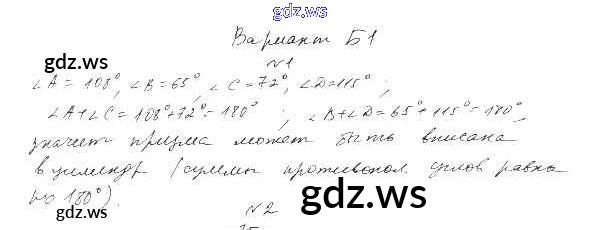 gdz.ws
Вариант Б1
gdz.ws
№1
∠A = 108°, ∠B = 65°, ∠C = 72°, ∠D = 115°;
∠A+∠C = 108°+72° = 180° ; ∠B+∠D = 65°+115° = 180°,
значит призма может быть вписана
в цилиндр (суммы противопол. углов равны
по 180°).
gdz.ws
gdz.ws
gdz.ws
№2